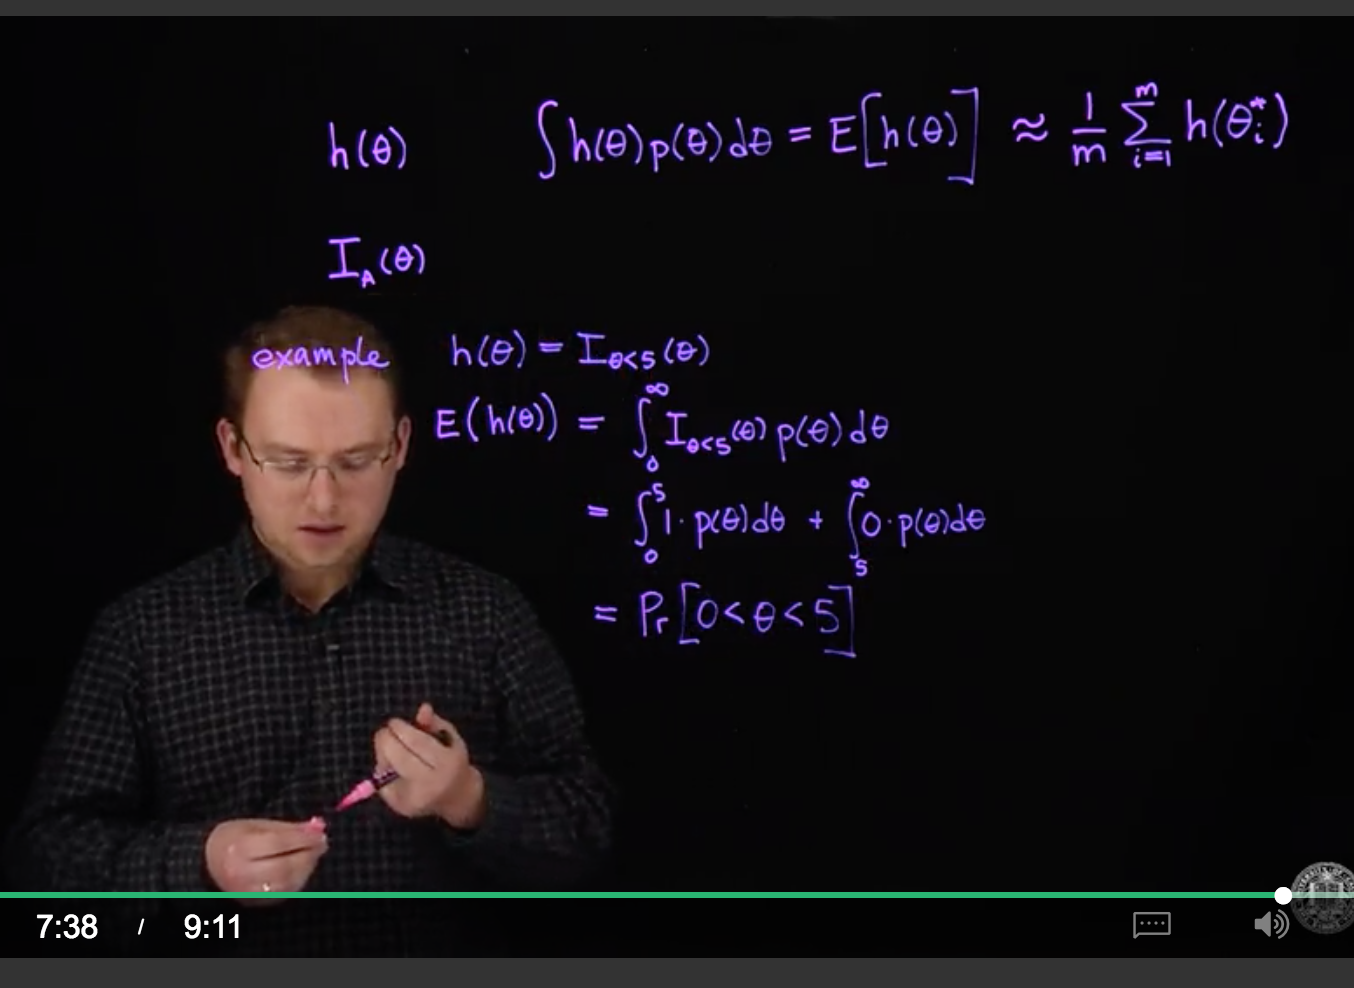 h(θ) ∫h(θ)p(θ)dθ = E[h(θ)] ≈ 1/m ∑_{i=1}^{m} h(θ_i^*)
I_A(θ)
example h(θ) = I_{θ<5}(θ)
E(h(θ)) = ∫_0^∞ I_{θ<5}(θ) p(θ)dθ
= ∫_0^5 1·p(θ)dθ + ∫_5^∞ 0·p(θ)dθ
= Pr[0<θ<5]
7:38 / 9:11